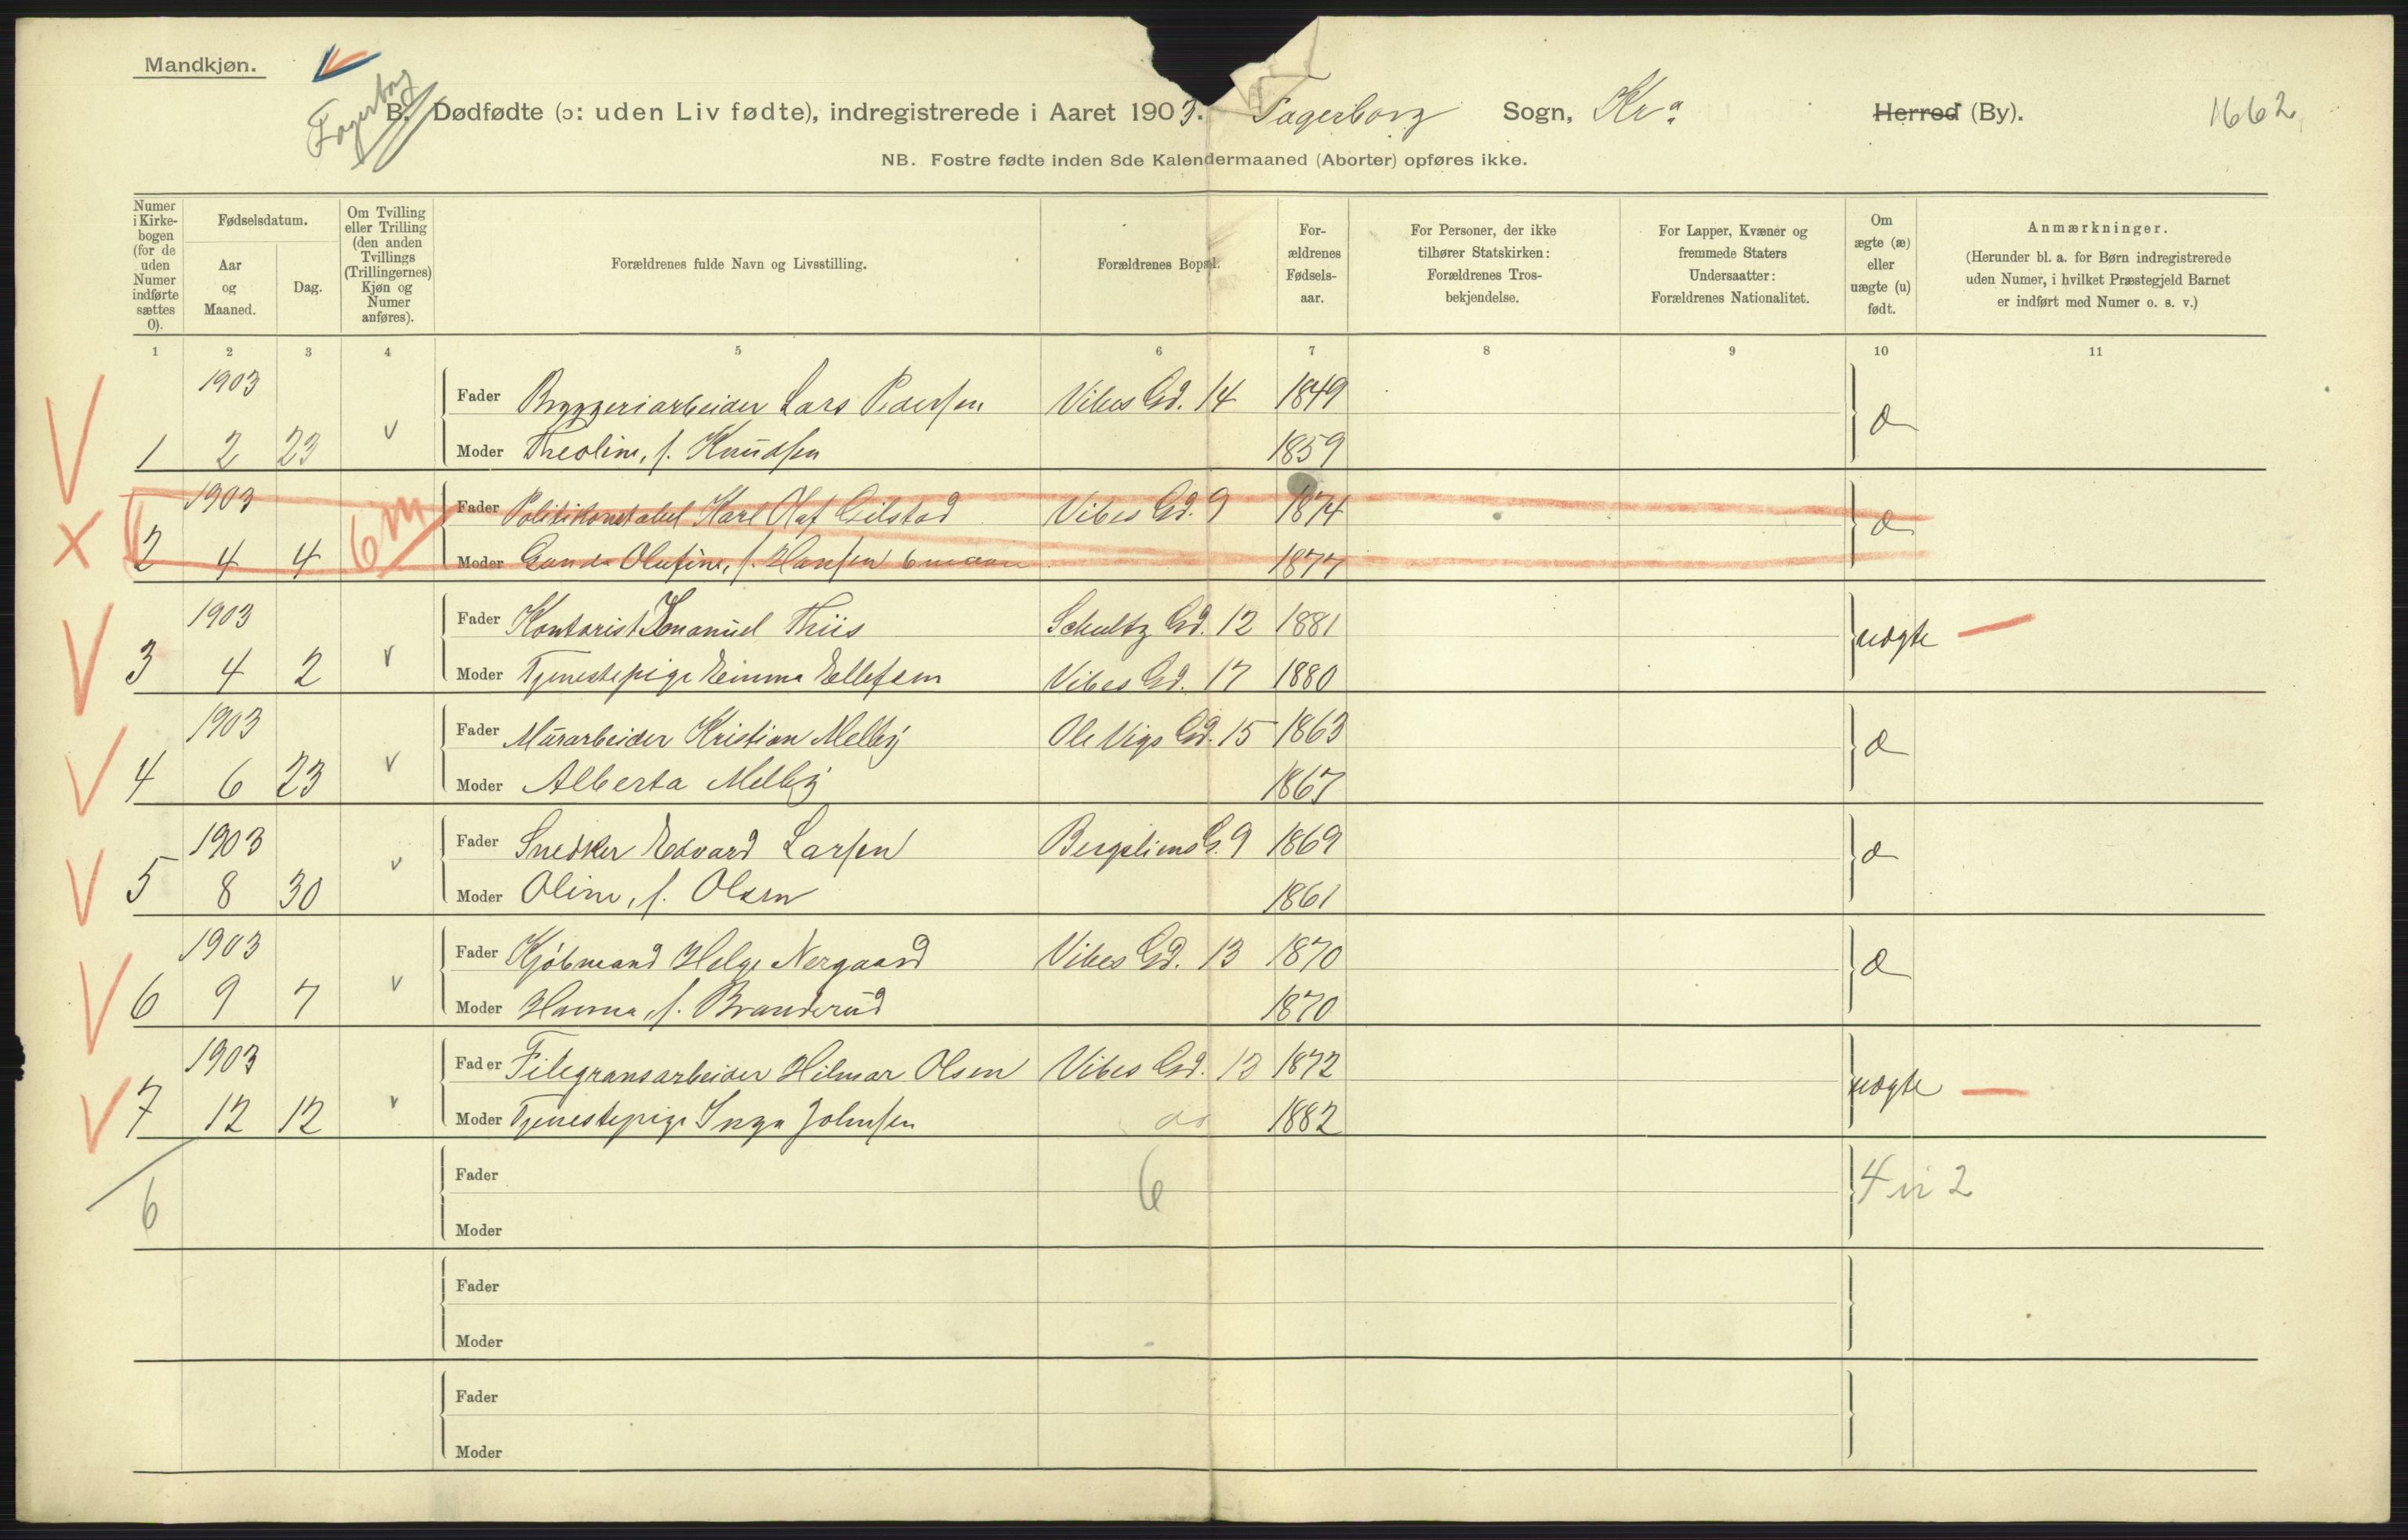 Mandkjøn.
Fagerborg
B. Dødfødte (ɔ: uden Liv fødte), indregistrerede i Aaret 1903. Fagerborg Sogn, Kr.a Herred (By).
1662
NB. Fostre fødte inden 8de Kalendermaaned (Aborter) opføres ikke.
Numer i Kirkebogen (for de uden Numer indførte sættes 0).
Fødselsdatum.
Aar og Maaned.
Dag.
Om Tvilling eller Trilling (den anden Tvillings (Trillingernes) Kjøn og Numer anføres).
Forældrenes fulde Navn og Livsstilling.
Forældrenes Bopæl.
Forældrenes Fødselsaar.
For Personer, der ikke tilhører Statskirken: Forældrenes Trosbekjendelse.
For Lapper, Kvæner og fremmede Staters Undersaatter: Forældrenes Nationalitet.
Om ægte (æ) eller uægte (u) født.
Anmærkninger.
(Herunder bl. a. for Børn indregistrerede uden Numer, i hvilket Præstegjeld Barnet er indført med Numer o. s. v.)
1 2 3 4 5 6 7 8 9 10 11
1903 Fader Bryggeriarbeider Lars Pedersen Vibes Gd. 14 1849 æ
1 2 23 v Moder Theoline, f. Knudsen 1859
1903 6 m Fader Politikonstabel Karl Olaf Gilstad Vibes Gd. 9 1874 æ
2 4 4 Moder Olufine, f. Hansen 6 maan 1877
1903 Fader Kontorist Emanuel Thiis Schultz Gd. 12 1881 uægte
3 4 2 v Moder Tjenestepige Emma Ellefsen Vibes Gd. 17 1880
1903 Fader Murarbeider Kristian Melby Ole Vigs Gd. 15 1863 æ
4 6 23 v Moder Alberta Melby 1867
1903 Fader Snedker Edvard Larsen Bergsliens G. 9 1869 æ
5 8 30 v Moder Oline, f. Olsen 1861
1903 Fader Kjøbmand Helge Nergaard Vibes Gd. 13 1870 æ
6 9 7 v Moder Hanna, f. Branderud 1870
1903 Fader Filegransarbeider Hilmar Olsen Vibes Gd. 13 1872 uægte
7 12 12 v Moder Tjenestepige Inga Johnsen do 1882
6 Fader 6 4 u 2
Moder
Fader
Moder
Fader
Moder